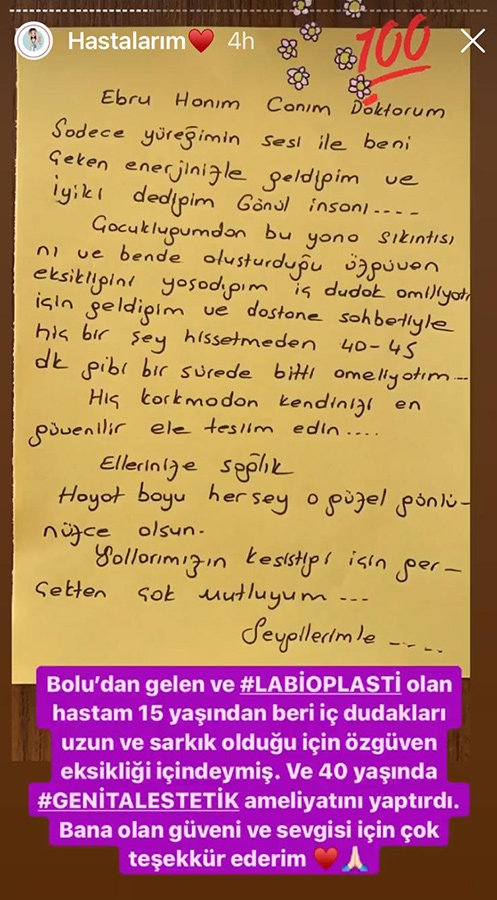 Hastalarım❤️ 4h
100
Ebru Hanım Canım Doktorum
Sadece yüreğimin sesi ile beni
çeken enerjinizle geldiğim ve
iyiki dediğim Gönül insanı....
Çocukluğumdan bu yana sıkıntısı
nı ve bende oluşturduğu özgüven
eksikliğini yaşadığım iç dudak amiliyatı
için geldiğim ve dostane sohbetiyle
hiç bir şey hissetmeden 40-45
dk gibi bir sürede bitti ameliyatım...
Hiç korkmadan kendinizi en
güvenilir ele teslim edin....
Ellerinize sağlık
Hayat boyu herşey o güzel gönlü-
nüzce olsun.
Yollarımızın kesiştiği için ger-
çekten çok mutluyum ...
Sevgilerimle .....
Bolu'dan gelen ve #LABİOPLASTİ olan
hastam 15 yaşından beri iç dudakları
uzun ve sarkık olduğu için özgüven
eksikliği içindeymiş. Ve 40 yaşında
#GENİTALESTETİK ameliyatını yaptırdı.
Bana olan güveni ve sevgisi için çok
teşekkür ederim ❤️🙏🏻